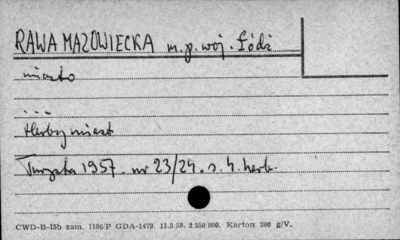 RAWA MAZOWIECKA m.p. woj. Łódź
miasto
...
Herby miast
Turysta 1957. nr 23/24. s. 4. herb.
CWD-B-15b zam. 1106/P GDA-1479. 11.5.59. 2 550 000. Karton 200 g/V.